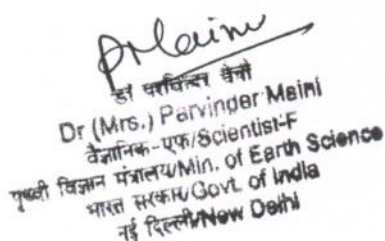 PMaini
डॉ परविन्दर मैनी
Dr (Mrs.) Parvinder Maini
वैज्ञानिक-एफ/Scientist-F
पृथ्वी विज्ञान मंत्रालय/Min. of Earth Science
भारत सरकार/Govt. of India
नई दिल्ली/New Delhi